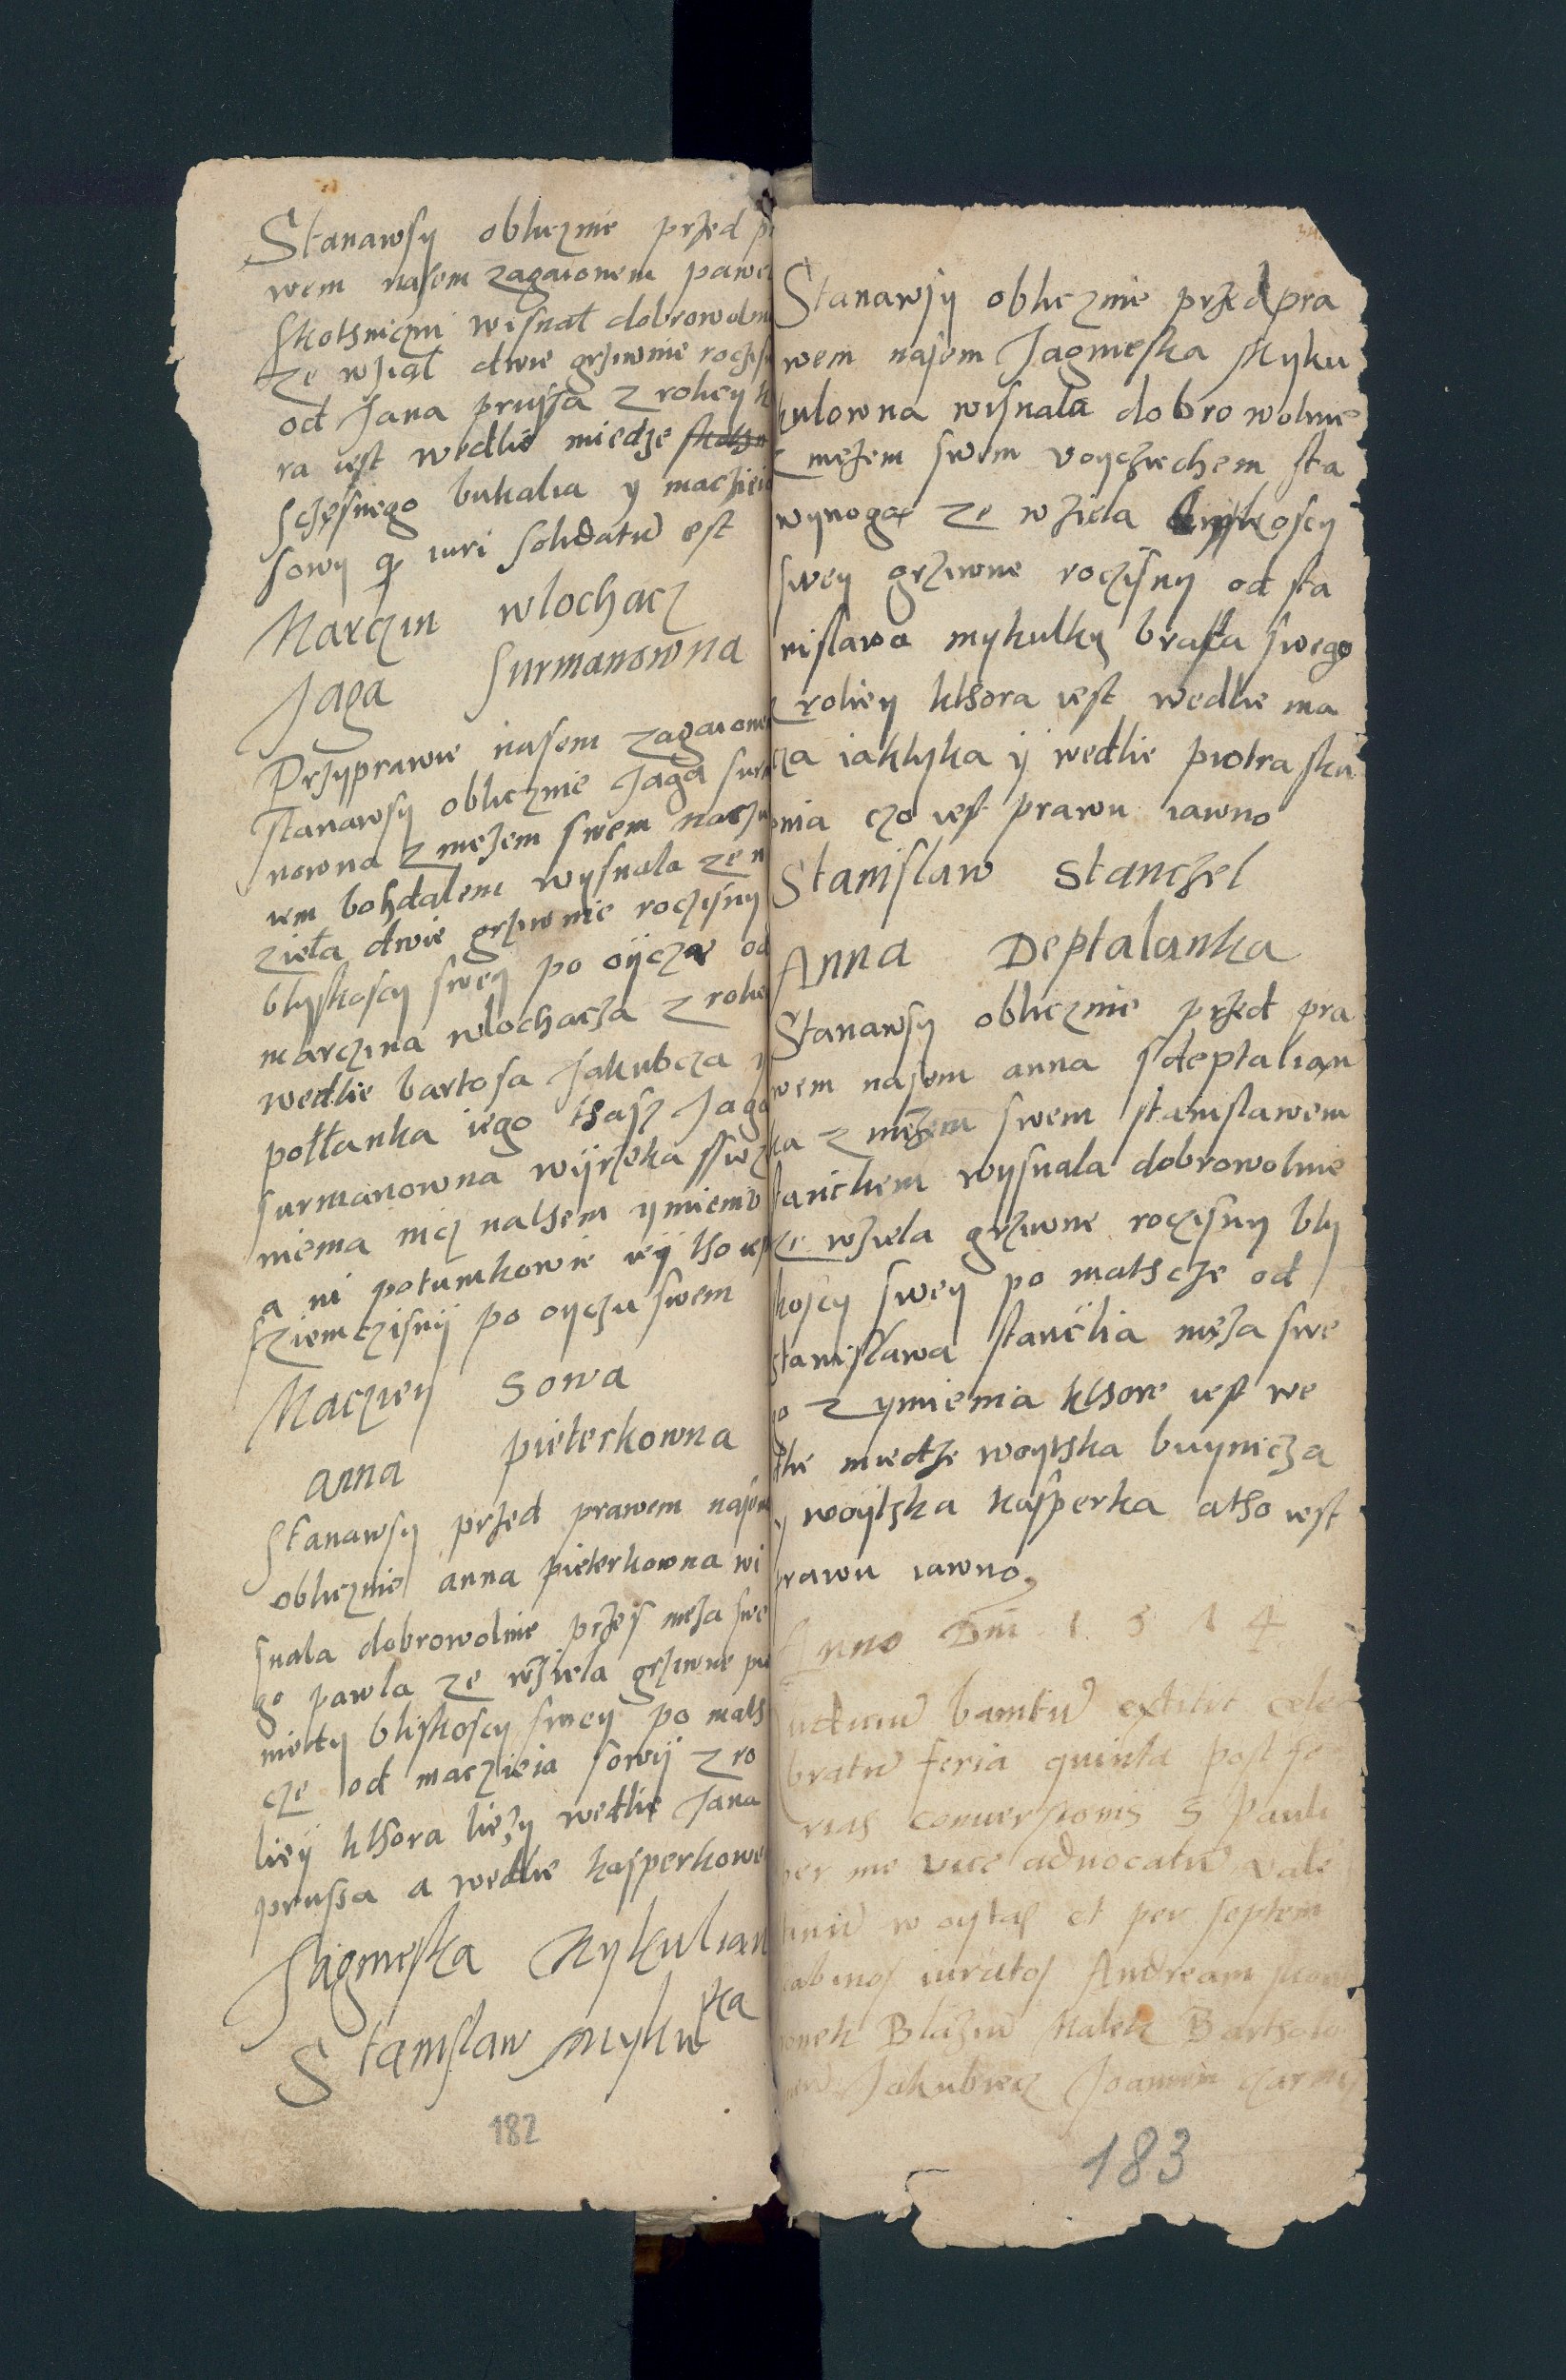 Stanawsy oblicznie przed p
wem nasem zagaionem pawe
skotsniczni wisnał dobrowoln
ze wział dwie grziwnie roczis
od Jana prussa z roliey k
ra iest wedlie miedze
sczęsnego bukalia y maczieia
sowy iuri solidatu est
Marczin wlochacz
Jaga surmanowna
Przyprawie nasem zagaione
stanawsy oblicznie Jaga sur
nowna z mezem swem macze
iem bohdalem wysnala ze w
zieła dwie grziwnie roczisny
blyskoscy swey po oyczw od
marczina wlochacza z rolie
wedlie bartosa Jakubcza y
połłanka iego tsasz Jaga
surmanowna wyrzeka ssie z
niema nicz natsem ymieniu
a ni potumkowie iey tso ies
sziemczisny po oyczu swem
Macziey Sowa
anna pieterkowna
Stanawsy przed prawem nasem
oblicznie anna pieterkowna wi
snala dobrowolnie przes meza swe
go pawla ze wziela grziwne pie
niotty bliskoscy swey po mats
cze od maczieia sowy z ro
liey ktsora liezy wedlie Jana
prussa a wedlie kasperkowe
Jagnieska Mykulian
ka
Stanislaw mykul
182
Stanawsy oblicznie przed pra
wem nasem Jagnieska Myku
kulowna wisnala dobrowolnie
z mezem swem voycziechem sta
wynoga ze wziela blyskoscy
swey grziwne roczisny od sta
nislawa mykulky brata swego
z roliey ktsora iest wedlie ma
cza iaktyka y wedlie piotra sku
nia czo iest prawu iawno
Stanislaw Stanczel
Anna Deptalanka
Stanawsy oblicznie przed pra
wem nasem anna sdeptalian
ka z mezem swem stanislawem
stanclem wysnala dobrowolnie
ze wziela grziwne roczisny bly
koscy swey po matscze od
stanisława stanclia męza swe
go z ymienia ktsore iest we
dlie miedze woytska buynicza
y woytska kasperka atso iest
prawu iawno
Anno Dni 1 5 7 4
Judiciu banitu extitit cele
bratu feria quinta post fe
rias conuersionis S Pauli
per me vice aduocatu vale
tinu woytas et per septem
scabinos iuratos Andream
Blaziu Malek Bartholo
meu Jakubiecz Joannem czarni
183